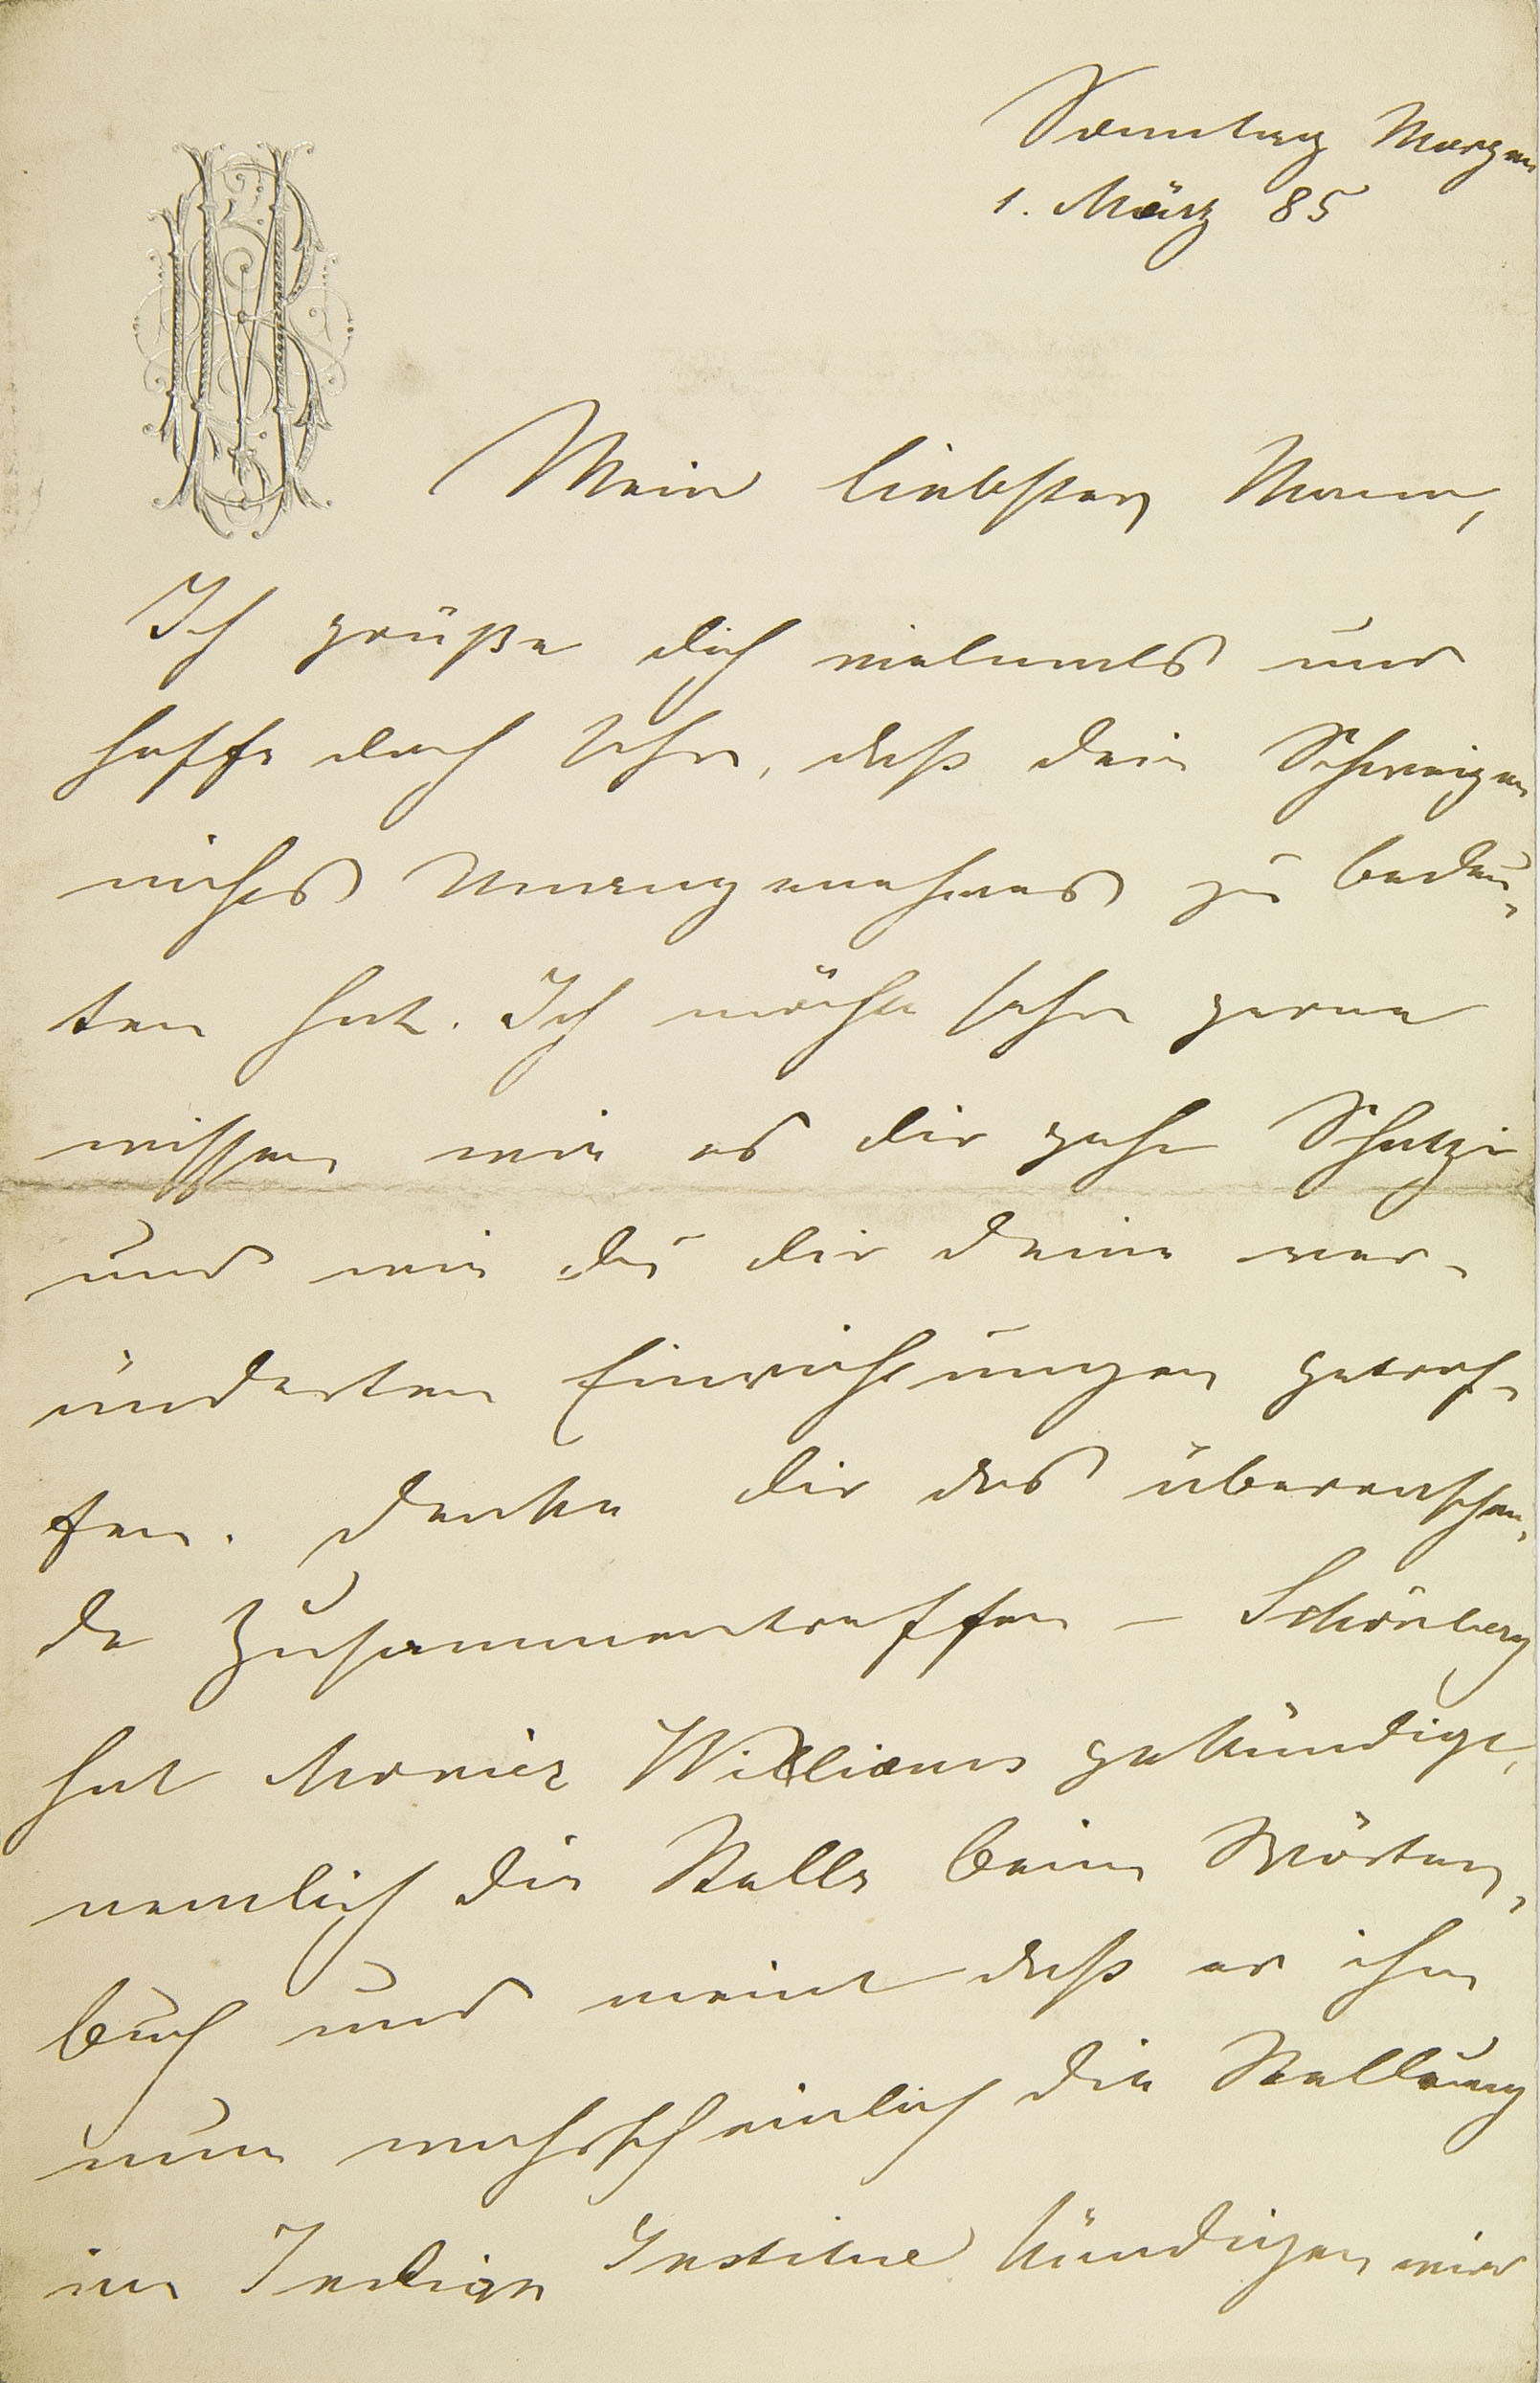 Sonntag Morgen
1. März 85
Mein liebster Mann,
Ich grüße dich vielmals und
hoffe doch sehr, daß dein Schweigen
nichts Unangenehmes zu bedeu-
ten hat. Ich möchte sehr gerne
wissen wie es dir geht Schatzi
und wie du dir deine ver-
änderten Einrichtungen getrof-
fen. Denke dir das überraschen-
de Zusammentreffen – Schönberg
hat Monier Williams gekündigt,
nemlich die Stelle beim Wörter-
buch und meint daß er ihm
nun wahrscheinlich die Stellung
im Indian Institute kündigen wird